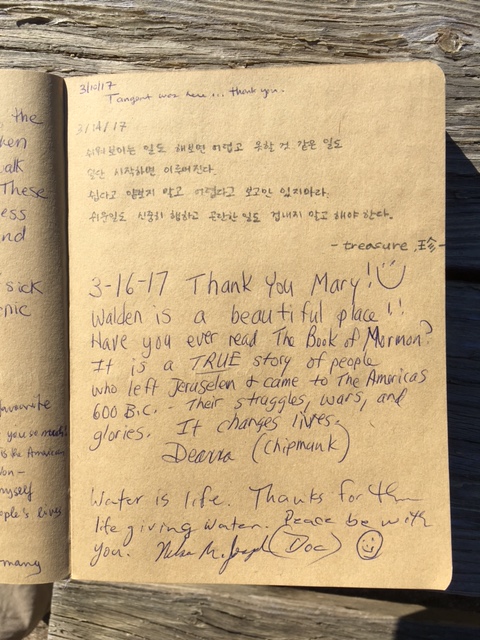 the
hen
alk
These
ess
nd
sick
enic
favourite
you so much!
is the American
on -
myself
ople's lives
many
3/10/17
Tangent was here... thank you.
3/14/17
쉬워보이는 일도 해보면 어렵고 못할 것 같은 일도
일단 시작하면 이루어진다.
쉽다고 얕보지 말고 어렵다고 보고만 있지마라.
쉬운일도 신중히 행하고 곤란한 일도 겁내지 말고 해야 한다.
- treasure 珍 -
3-16-17 Thank You Mary!
Walden is a beautiful place!!
Have you ever read The Book of Mormon?
It is a TRUE story of people
who left Jeruselen & came to The Americas
600 B.C. - Their struggles, wars, and
glories. It changes lives.
(Chipmunk)
Water is life. Thanks for the
life giving water. Peace be with
you. (Doc)